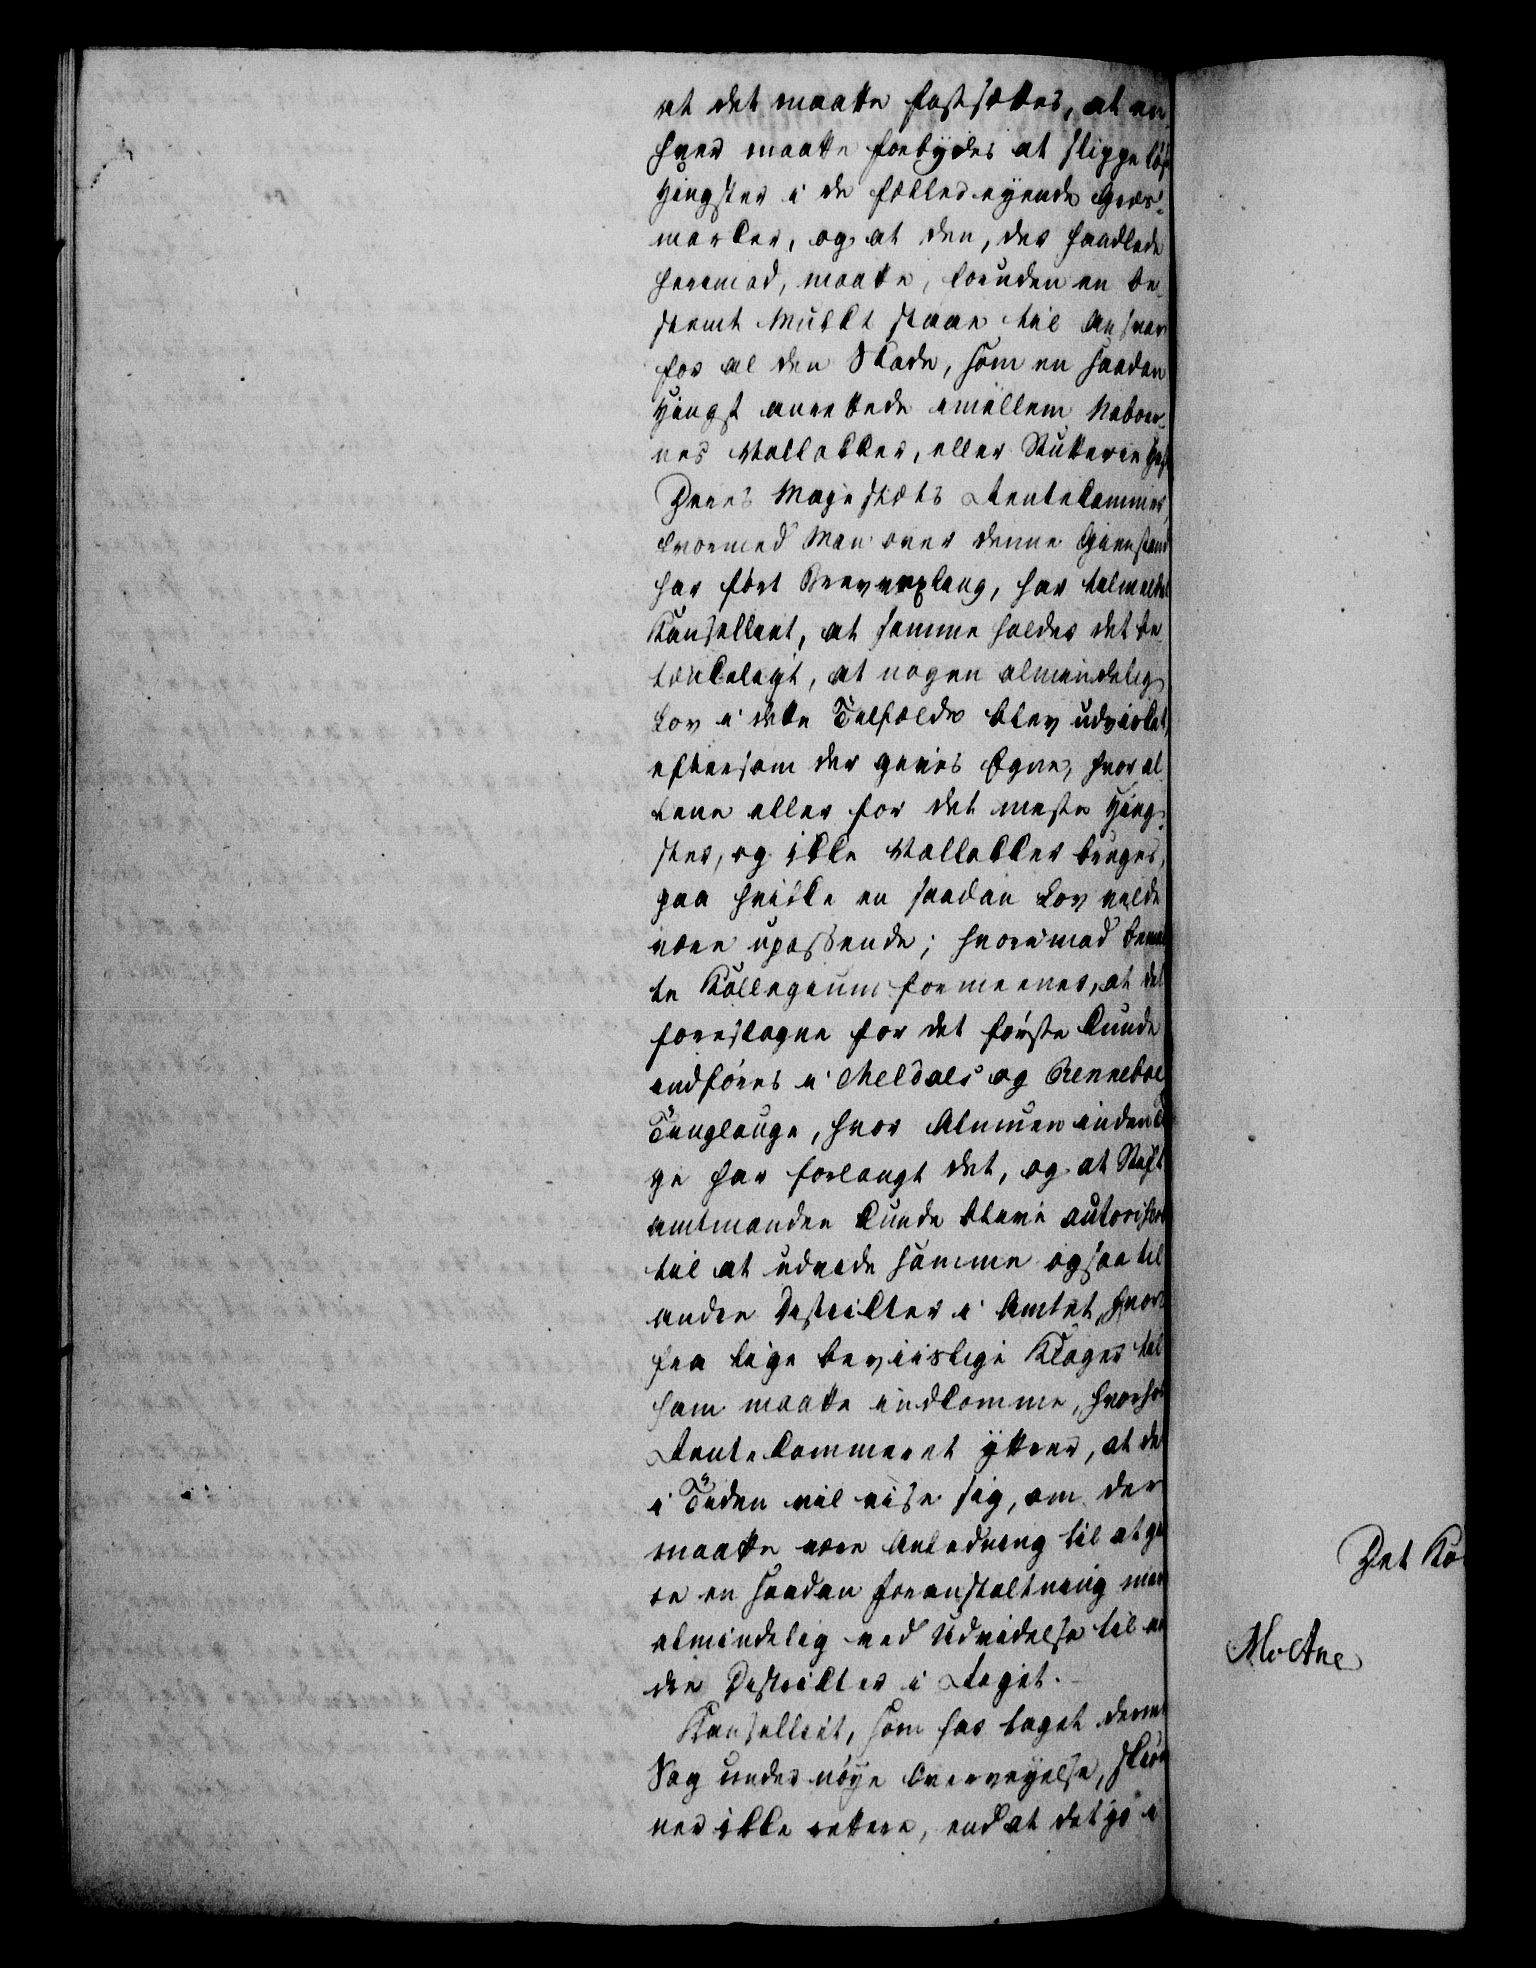 at det maatte fastsættes, at en
hver maatte forbydes at slippe løse
Hingster i de fælles eyende Græs¬
marker, og at den, der handlede
heremod, maatte, foruden en be¬
stemt Mulkt staae til Ansvar
for al den Skade, som en saadan
Hingst anrettede imellem Naboer¬
nes Vallakker, eller Stutterie Hest
Deres Majestæts Rentekammer,
hvormed Man over denne Gienstand
har ført Brevvexlung, har tilmeldet
Kanselliet, at samme holder det be¬
tænkeligt, at nogen almindelig
Lov i dette Tilfælde blev udvirket,
eftersom der gives Egne, hvor al
lene eller for det meste Hing¬
ster, og ikke Vallakker bruges,
paa hvilke en saadan Lov vilde
være upassende; hvorimod bemeld
te Kollegium formeener, at det
foreslagne for det første kunde
indføres i Meldals og Renneboe
Tinglauge, hvor Almuen inden Tin
ge har forlangt det, og at Stift
amtmanden kunde blive autoriseret
til at udvide samme ogsaa til
andre Distrikter i Amtet, hvor
fra lige beviislige Klager til
ham maatte indkomme, hvorhos
Rentekammeret yttrer, at det
i Tiden vil vise sig, om der
maatte være Anledning til at gjø
re en saadan Foranstaltning mere
almindelig ved Udvidelse til an
dre Distrikter i Riget.
Kanselliet, som har taget denne
Sag under nøye Overveyelse, skiøn
ner ikke rettere, end at det jo i
Det Ko
Moltke